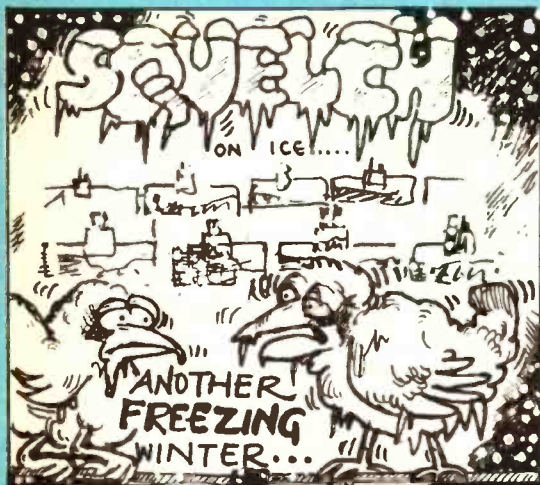 SQUELCH
ON ICE.....
ANOTHER
FREEZING
WINTER...